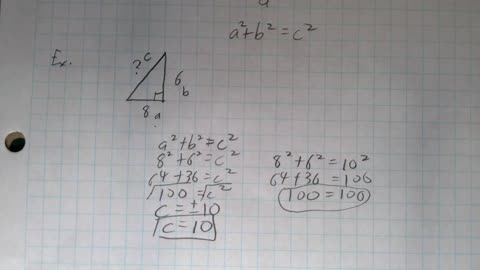 a²+b²=c²
Ex.
? c
6 b
8 a
a²+b²=c²
8²+6²=c²
64+36=c²
√100=√c²
c=±10
c=10
8²+6²=10²
64+36=100
100=100